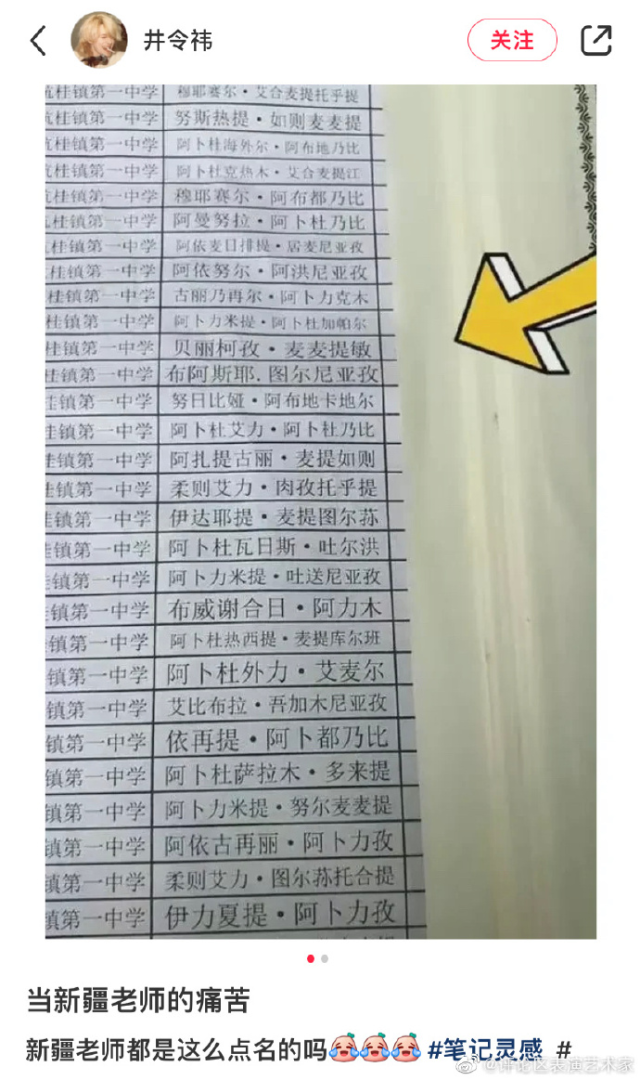 井令祎
关注
杭桂镇第一中学 穆耶赛尔·艾合麦提托乎提
杭桂镇第一中学 努斯热提·如则麦麦提
杭桂镇第一中学 阿卜杜海外尔·阿布地乃比
杭桂镇第一中学 阿卜杜克热木·艾合麦提江
杭桂镇第一中学 穆耶赛尔·阿布都乃比
杭桂镇第一中学 阿曼努拉·阿卜杜乃比
桂镇第一中学 阿依麦日排提·居麦尼亚孜
桂镇第一中学 阿依努尔·阿洪尼亚孜
桂镇第一中学 古丽乃再尔·阿卜力克木
桂镇第一中学 阿卜力米提·阿卜杜加帕尔
桂镇第一中学 贝丽柯孜·麦麦提敏
桂镇第一中学 布阿斯耶.图尔尼亚孜
桂镇第一中学 努日比娅·阿布地卡地尔
桂镇第一中学 阿卜杜艾力·阿卜杜乃比
桂镇第一中学 阿扎提古丽·麦提如则
桂镇第一中学 柔则艾力·肉孜托乎提
桂镇第一中学 伊达耶提·麦提图尔荪
桂镇第一中学 阿卜杜瓦日斯·吐尔洪
桂镇第一中学 阿卜力米提·吐送尼亚孜
镇第一中学 布威谢合日·阿力木
镇第一中学 阿卜杜热西提·麦提库尔班
镇第一中学 阿卜杜外力·艾麦尔
镇第一中学 艾比布拉·吾加木尼亚孜
镇第一中学 依再提·阿卜都乃比
镇第一中学 阿卜杜萨拉木·多来提
镇第一中学 阿卜力米提·努尔麦麦提
镇第一中学 阿依古再丽·阿卜力孜
镇第一中学 柔则艾力·图尔荪托合提
镇第一中学 伊力夏提·阿卜力孜
当新疆老师的痛苦
新疆老师都是这么点名的吗 #笔记灵感 #
@评论区表演艺术家